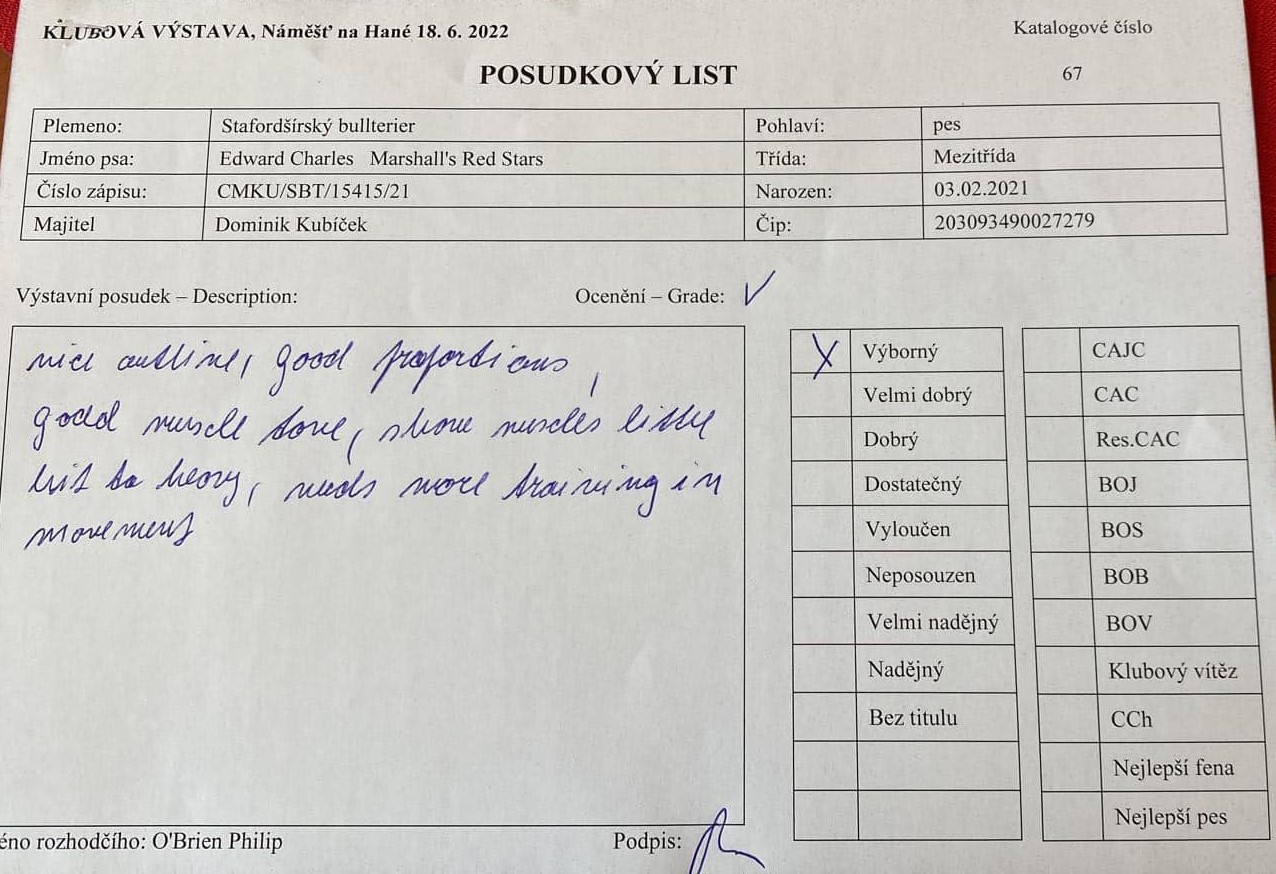 KLUBOVÁ VÝSTAVA, Náměšť na Hané 18. 6. 2022
Katalogové číslo
POSUDKOVÝ LIST
67
Plemeno: Stafordšírský bullterier Pohlaví: pes
Jméno psa: Edward Charles Marshall's Red Stars Třída: Mezitřída
Číslo zápisu: CMKU/SBT/15415/21 Narozen: 03.02.2021
Majitel Dominik Kubíček Čip: 203093490027279
Výstavní posudek – Description: Ocenění – Grade: V
nice outline, good proportions,
good muscle tone, muscles little
bit to heavy, needs more training in
movement
X Výborný
Velmi dobrý
Dobrý
Dostatečný
Vyloučen
Neposouzen
Velmi nadějný
Nadějný
Bez titulu
CAJC
CAC
Res.CAC
BOJ
BOS
BOB
BOV
Klubový vítěz
CCh
Nejlepší fena
Nejlepší pes
éno rozhodčího: O'Brien Philip Podpis: